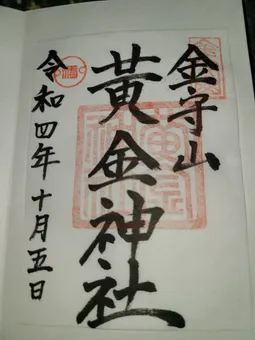 金守山
黄金神社
令和四年十月五日